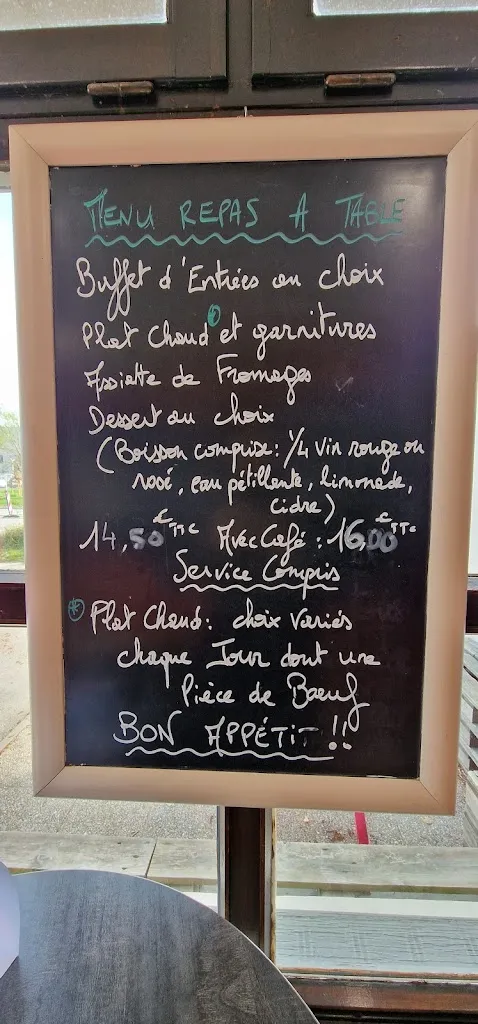 MENU REPAS A TABLE
Buffet d'Entrées au choix
Plat Chaud* et garnitures
Assiette de Fromages
Dessert au choix
(Boisson comprise: 1/4 vin rouge ou
rosé, eau pétillante, limonade,
cidre)
14,50 € TTC Avec Café : 16,00 € TTC
Service Compris
* Plat Chaud: choix variés
chaque Jour dont une
Pièce de Bœuf
BON APPÉTIT !!